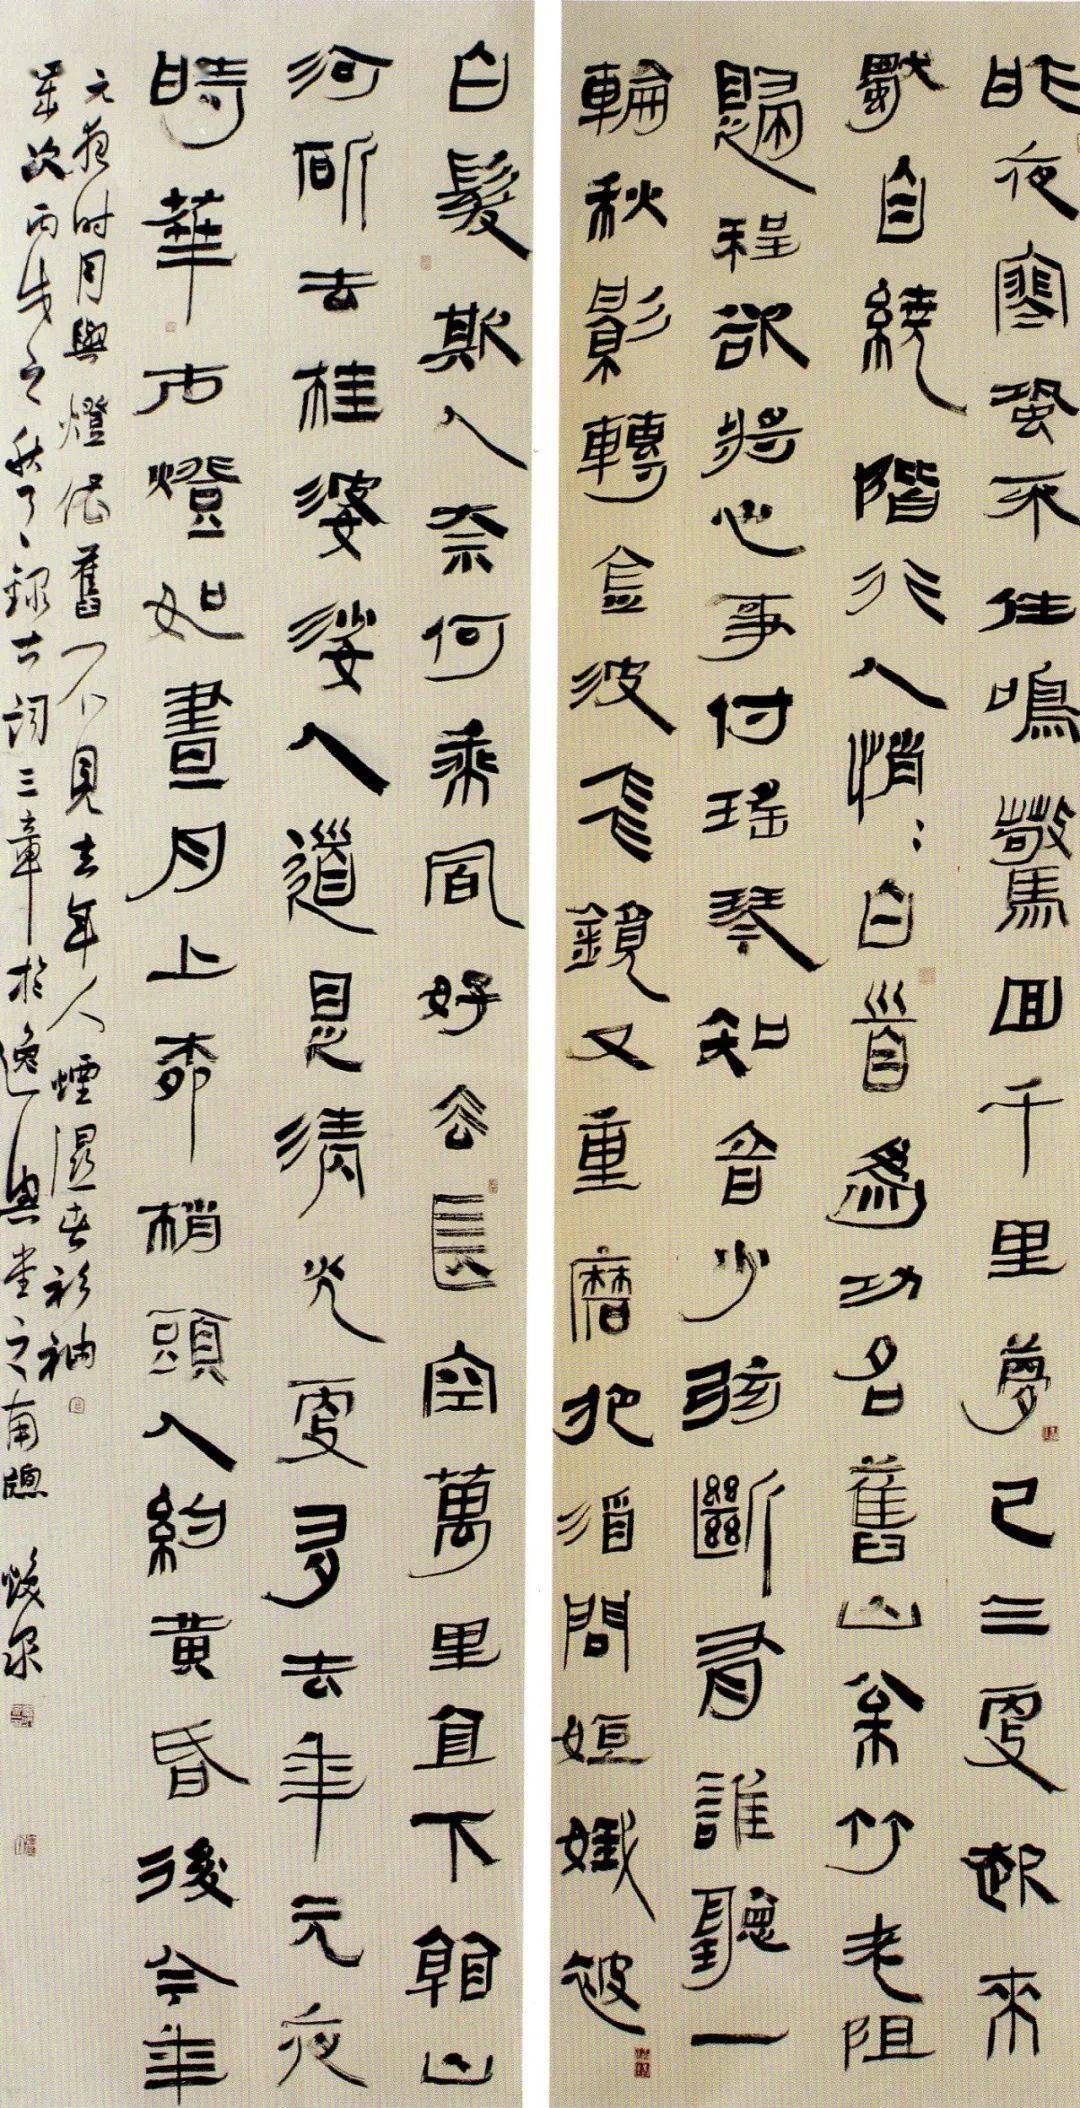 昨夜寒蛩不住鳴驚回千里夢已三更起來
獨自繞階行人悄〻白首為功名舊山松竹老阻
歸程欲將心事付瑤琴知音少弦斷有誰聽一
輪秋影轉金波飛鏡又重磨把酒問姮娥被
白髮欺人奈何乘風好去長空萬里直下看山
河斫去桂婆娑人道是清光更多去年元夜
時華市燈如晝月上柳梢頭人約黃昏後今年
元夜时月與燈依舊不見去年人煙濕春衫袖
歲次丙戌之秋錄古词三章於逸興堂之南牕